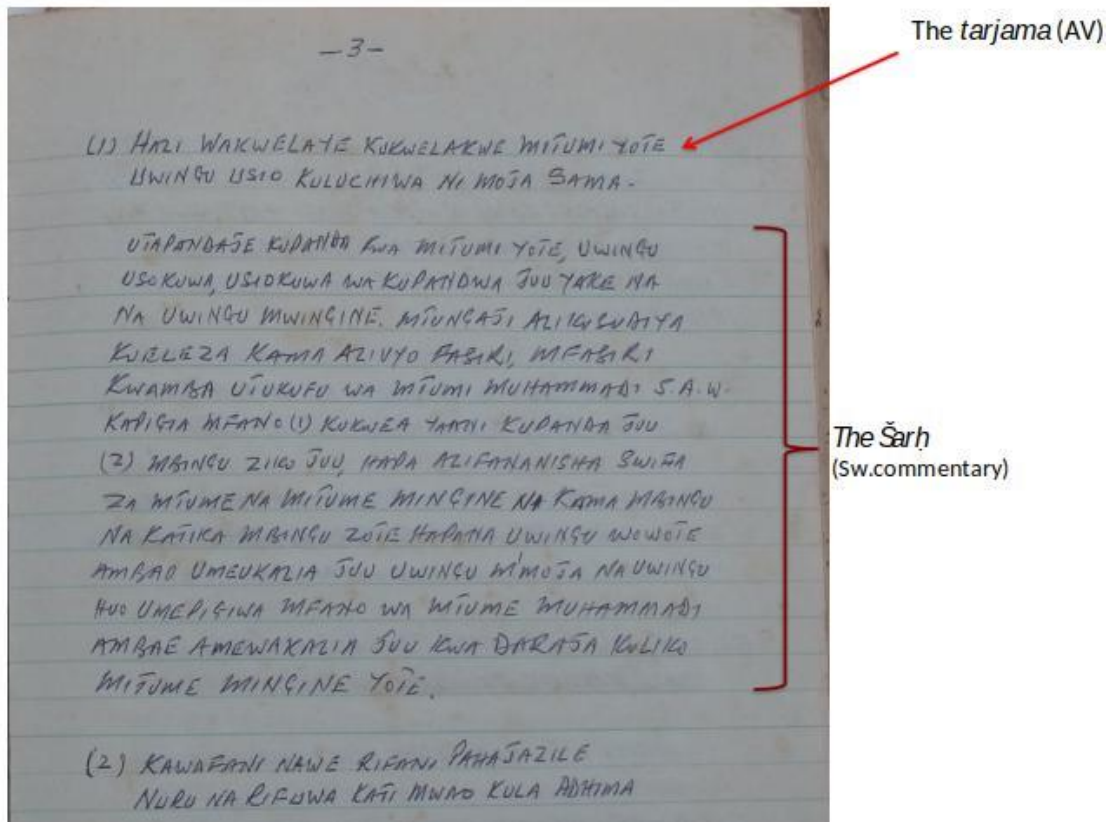 The tarjama (AV)
-3-
(1) HAZI WAKWELAYE KUKWELAKWE MITUMI YOTE
UWINGU USIO KULUCHIWA NI MOJA SAMA.
UTAPANDAJE KUPANDA KWA MITUMI YOTE, UWINGU
USOKUWA, USIOKUWA WA KUPANDWA JUU YAKE NA
NA UWINGU MWINGINE. MTUNGAJI ALIKUSUDIYA
KUELEZA KAMA ALIVYO FASIRI, MFASIRI
KWAMBA UTUKUFU WA MTUMI MUHAMMADI S.A.W.
KAPIGIA MFANO (1) KUKWEA YAANI KUPANDA JUU
(2) MBINGU ZIKO JUU, HAPA ALIFANANISHA SWIFA
ZA MTUME NA MITUME MINGINE NA KAMA MBINGU
NA KATIKA MBINGU ZOTE HAPANA UWINGU WOWOTE
AMBAO UMEUKALIA JUU UWINGU M'MOJA NA UWINGU
HUO UMEPIGIWA MFANO WA MTUME MUHAMMADI
AMBAE AMEWAKALIA JUU KWA DARAJA KULIKO
MITUME MINGINE YOTE.
The Šarḥ
(Sw.commentary)
(2) KAWAFANI NAWE RIFANI PAHAJAZILE
NURU NA RIFUWA KATI MWAO KULA ADHIMA